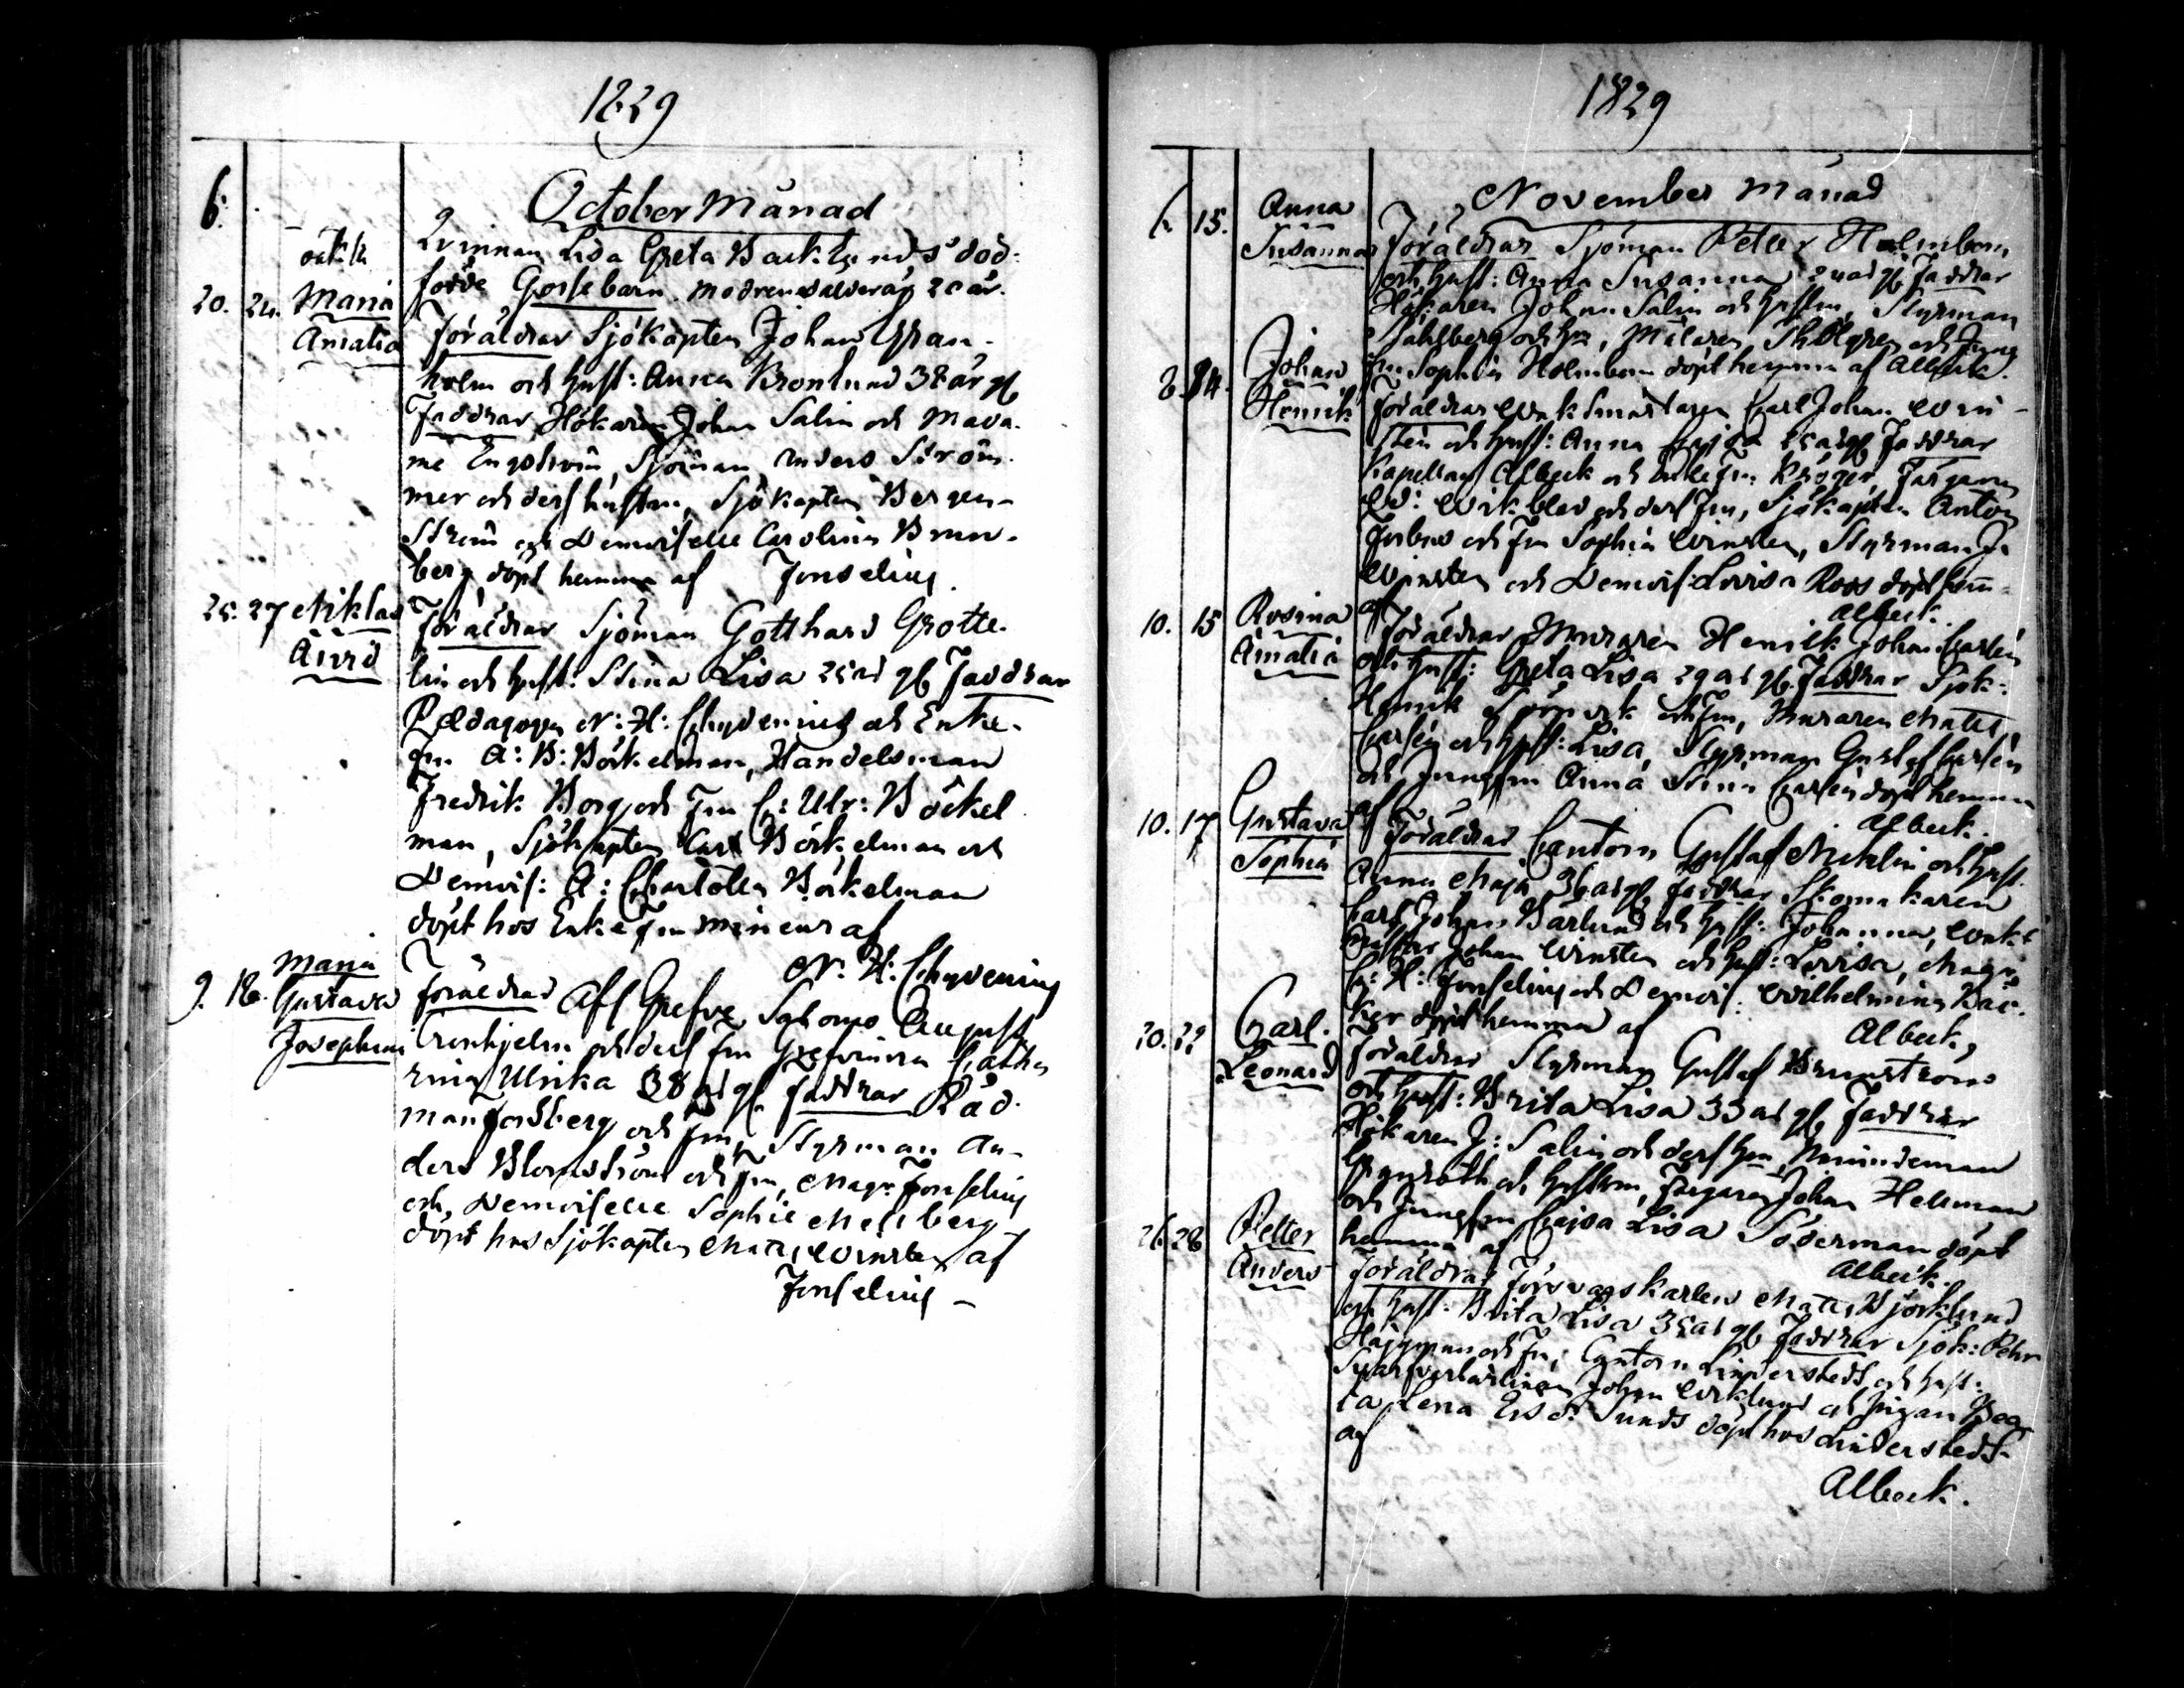 1829
October Månad
6.
oäkta
Qvinnan Lisa Greta Backlunds död-
födde Gossebarn modrens ålder är 20 år.
20. 24. Maria Amalia
Föräldrar Sjökapten Johan Gran-
holm och hust: Anna Bronlund 38 år gl
Faddrar, Hökaren Johan Salin och Mada-
me Engström, Sjöman Anders Ström-
mer och dess hustru, Sjökapten Bergen-
ström och Demoiselle Carolina Brun-
berg döpt hemma af Jonselius
25. 27 Niklas Aurd
Föräldrar Sjöman Gotthard Grotte-
lin och hust: Stina Lisa 25 år gl Faddrar
Pædagogen N: H: Chydenius och Enke-
fru A: B: Böckelman, Handelsman
Fredrik Borg och Fru C: Ulr: Böckel
man, Sjökapten Carl Böckelman och
Demois: A: Charlotta Böckelman
döpt hos Enkefru Mineur af
N: H: Chydenius
9. 18. Maria Gustava Josephina
Föräldrar Afl Grefve Salomo August
Cronhjelm och dess fru Grefvinna Catha
rina Ulrika 38 år gl. faddrar Råd-
man Forsberg och fru, Styrman An-
ders Blomström och fru, Mag: Jonselius
och Demoiselle Sophie Mellberg
döpt hos Sjökapten Matts Winsten af
Jonselius
1829
November Månad
6. 15. Anna Susanna
Föräldrar Sjöman Petter Holmbom
och hust: Anna Susanna år gl Faddrar
Hökaren Johan Salin och hustru, Styrman
Dahlberg och hu, Målaren och Jung
fru Sophia Holmbom döpt hemma af Albeck.
8. 14. Johan Henrik
Föräldrar Wakhmästaren Carl Johan Win-
sten och hust: Anna Cajsa 25 år gl Faddrar
Kapellan Albeck och Enkefru Kröger, Färgaren
Ed: Wikblad och dess fru, Sjökapten Anton
Forbus och fru Sophia Winsten, Styrman J.
Winsten och Demois: Lovisa Roos döpt hem-
af Albeck.
10. 15 Rosina Amalia
Föräldrar Muraren Henrik Johan Carlén
och hust: Greta Lisa 29 år gl. Faddrar Sjök:
Henrik och fru, Muraren Matts
Carlén och hust: Lisa, Styrman Gustaf Carlén
och Jungfru Anna Stina Carlén döpt hemma
af Albeck.
10. 17 Gustava Sophia
Föräldrar Cantorn Gustaf Nicklin och hust.
Anna Maja 36 år gl. faddrar Skomakaren
Carl Johan Barlund och hust: Johanna, Wakt
mästar Johan Winsten och hust: Lovisa, Mag:
C: H: Jonselius och Demois: Wilhelmina Bäc-
ker döpt hemma af Albeck,
20. 22 Carl Leonard
Föräldrar Styrman Gustaf Brunström
och hust: Brita Lisa 33 år gl Faddrar
Hökaren J: Salin och dess hu, Minindeman
och hustru, Färgaren Johan Hellman
och Jungfru Cajsa Lisa Söderman döpt
hemma af Albeck.
26. 28 Petter Anders
Föräldrar Försvarskarlen Matts Björklund
och hust: Brita Lisa 35 år gl. Faddrar Sjök: Pehr
Häggman och fru, Cantorn Linderstedt och hust:
Johan Wiklund och Pigan
ta Lena Ersd: Sunds döpt hos Linderstedt
af
Albeck.